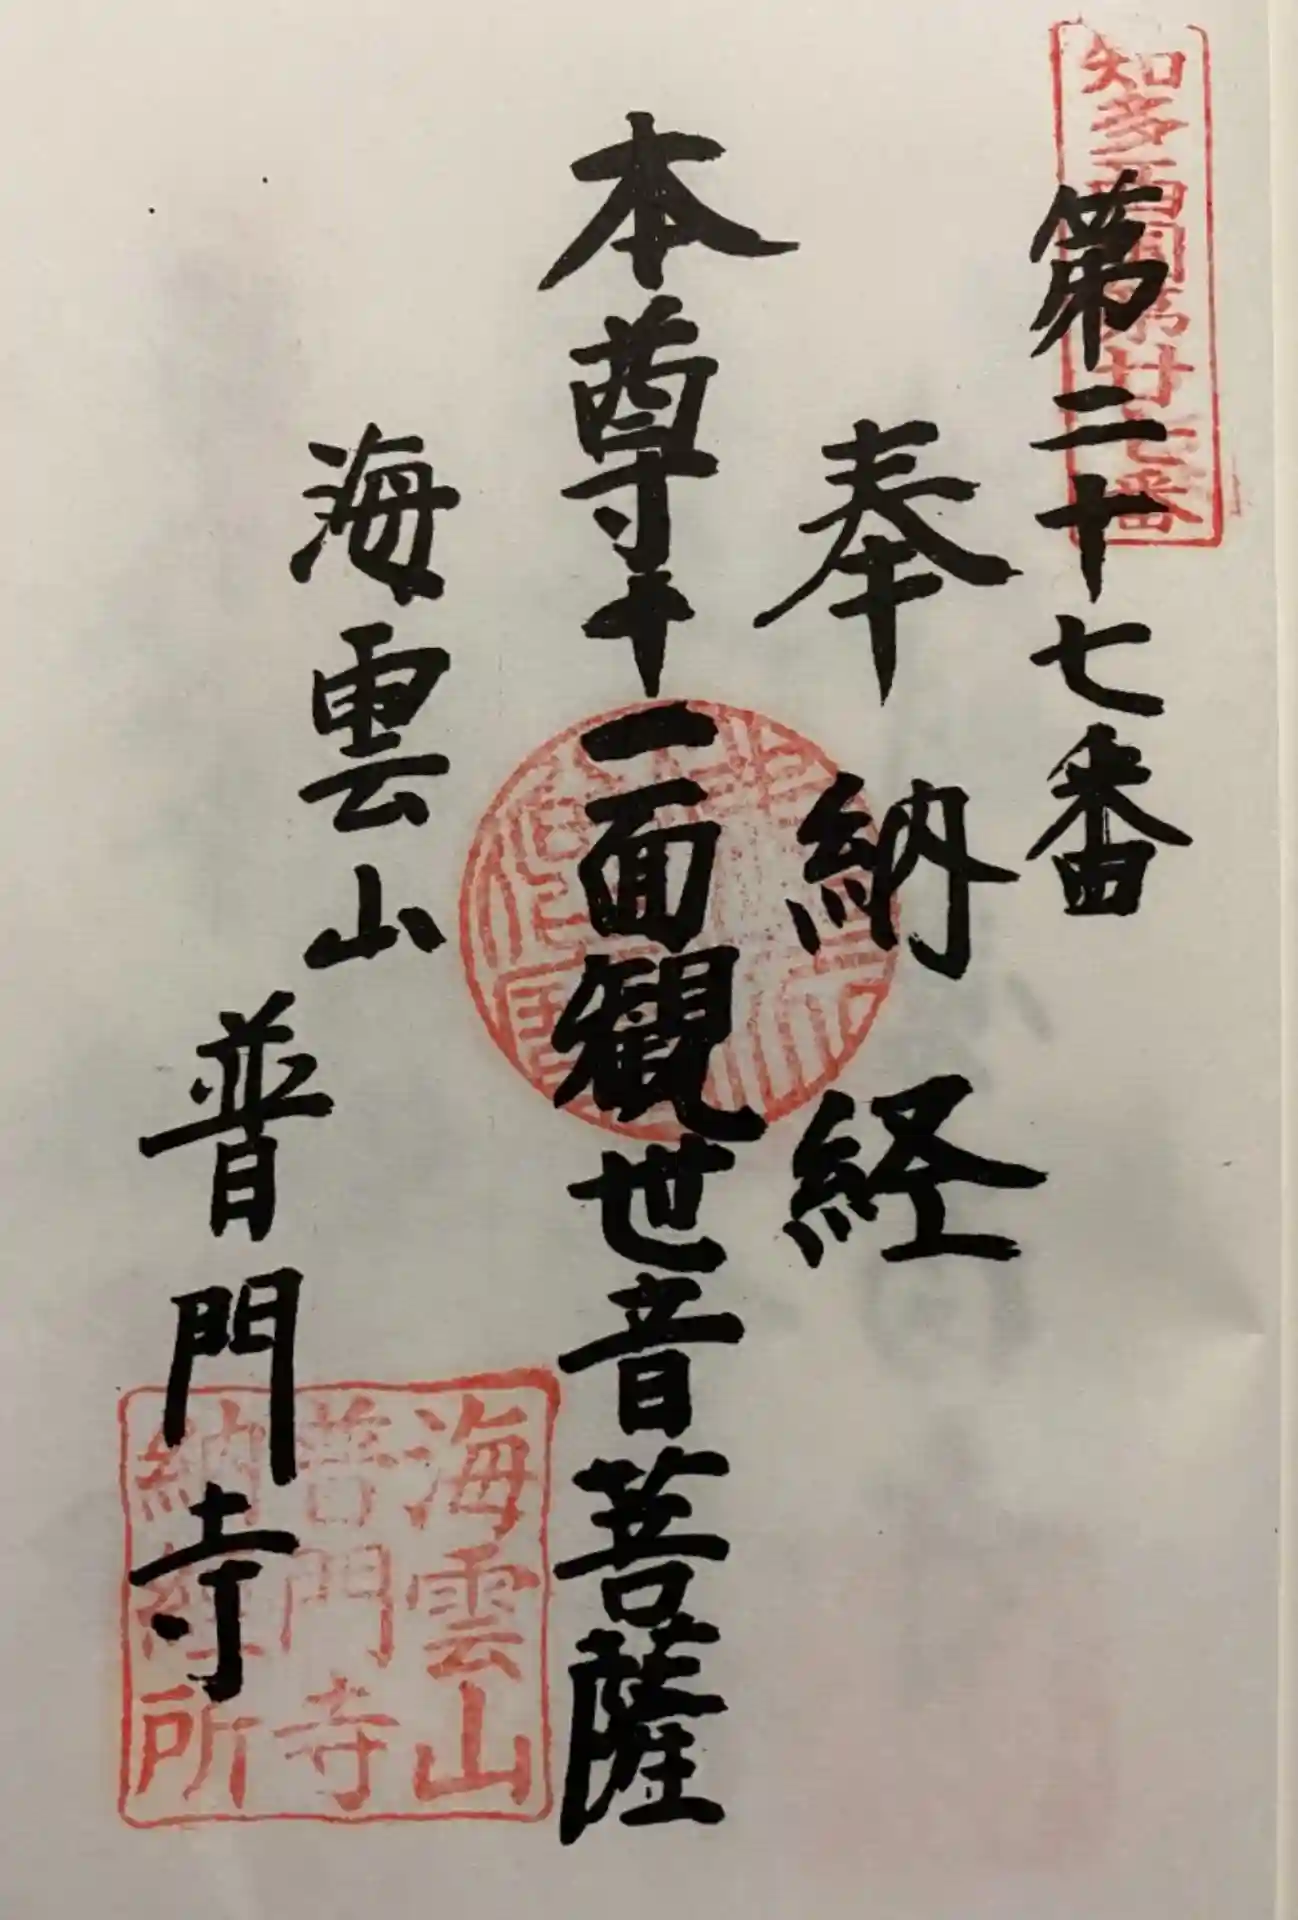 知多西国第廿七番
第二十七番
奉納経
本尊十一面観世音菩薩
海雲山
普門寺
海雲山
普門寺
納経所